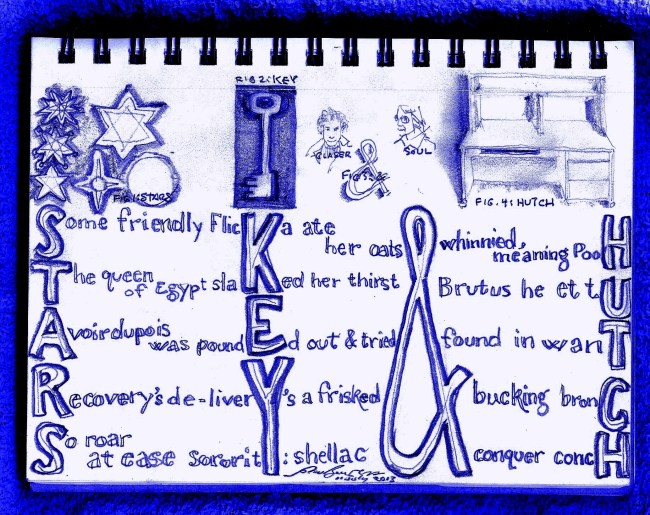 FIG 2: KEY
GLASER
SOUL
FIG 1: STARS
FIG. 4: HUTCH
Some friendly FlicKa ate her oats & whinnied, meaning PooH
The queen of Egypt slaKed her thirst & Brutus he et tU
Avoirdupois was poundEd out & tried & found in wanT
Recovery's de-liverY's a frisked & bucking bronC
So roar at ease sororitY: shellac & conquer concH
July 2013